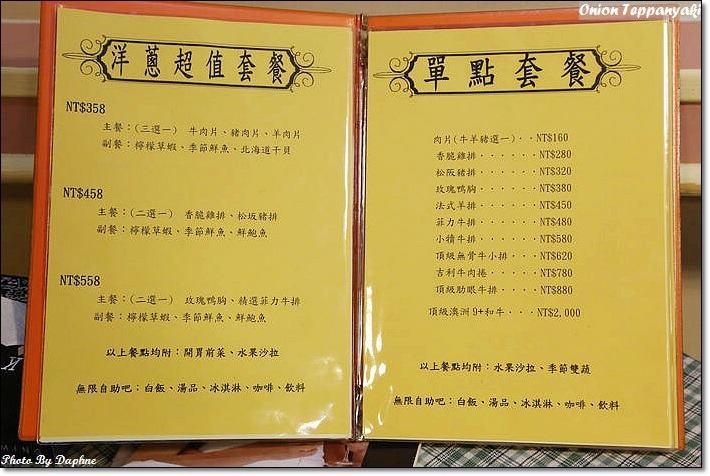 Onion Teppanyaki
洋蔥超值套餐
NT$358
主餐：(三選一) 牛肉片、豬肉片、羊肉片
副餐：檸檬草蝦、季節鮮魚、北海道干貝
NT$458
主餐：(二選一) 香脆雞排、松坂豬排
副餐：檸檬草蝦、季節鮮魚、鮮鮑魚
NT$558
主餐：(二選一) 玫瑰鴨胸、精選菲力牛排
副餐：檸檬草蝦、季節鮮魚、鮮鮑魚
以上餐點均附：開胃前菜、水果沙拉
無限自助吧：白飯、湯品、冰淇淋、咖啡、飲料
單點套餐
肉片(牛羊豬選一)··NT$160
香脆雞排······NT$280
松阪豬排······NT$320
玫瑰鴨胸······NT$380
法式羊排······NT$450
菲力牛排······NT$480
小犢牛排······NT$580
頂級無骨牛小排···NT$620
吉利牛肉捲·····NT$780
頂級肋眼牛排····NT$880
頂級澳洲9+和牛···NT$2,000
以上餐點均附：水果沙拉、季節雙蔬
無限自助吧：白飯、湯品、冰淇淋、咖啡、飲料
Photo By Daphne